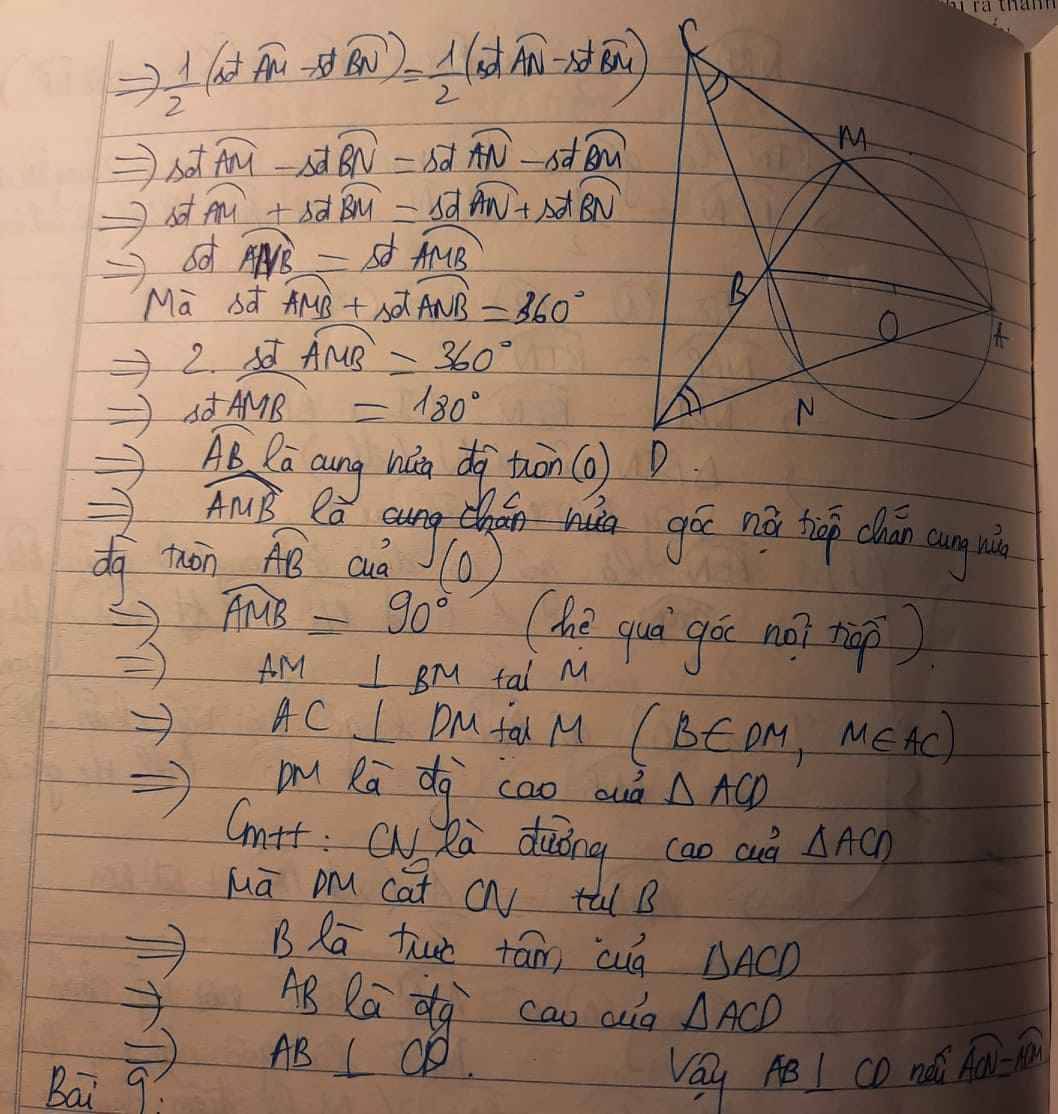 ra thành
⇒ 1/2 (sđ AM - sđ BN) = 1/2 (sđ AN - sđ BM)
⇒ sđ AM - sđ BN = sđ AN - sđ BM
⇒ sđ AM + sđ BM = sđ AN + sđ BN
⇒ sđ ANB = sđ AMB
Mà sđ AMB + sđ ANB = 360°
⇒ 2. sđ AMB = 360°
⇒ sđ AMB = 180°
⇒ AB là cung nửa đg tròn (O)
⇒ AMB là cung chắn nửa góc nội tiếp chắn cung nửa
đg tròn AB của (O)
⇒ AMB = 90° (hệ quả góc nội tiếp).
⇒ AM ⊥ BM tại M
⇒ AC ⊥ DM tại M (B∈DM, M∈AC)
⇒ DM là đg cao của Δ ACD
Cmtt: CN là đường cao của ΔACD
Mà DM cắt CN tại B
⇒ B là trực tâm của ΔACD
⇒ AB là đg cao của ΔACD
⇒ AB ⊥ CD. Vậy AB ⊥ CD nếu ACN = ADM
Bài 9:
C
M
B
O
A
N
D